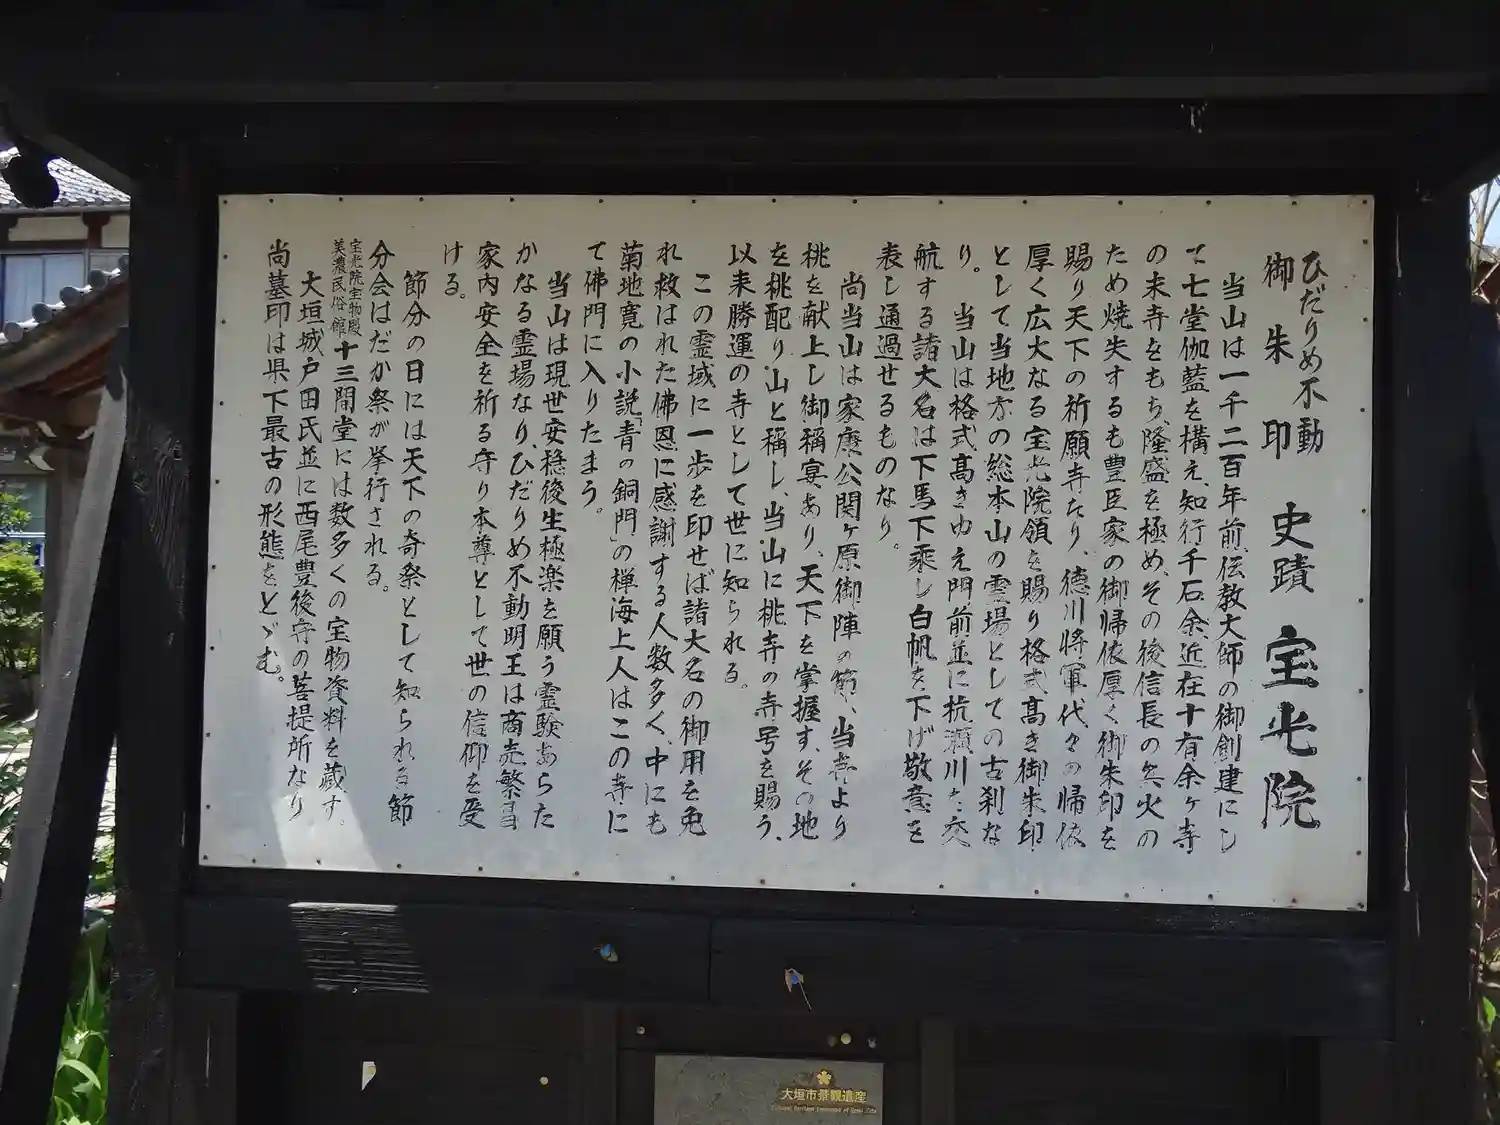 ひだりめ不動
御朱印 史蹟 宝光院
当山は一千二百年前、伝教大師の御創建にし
て七堂伽藍を構え、知行千石余、近在十有余ヶ寺
の末寺をもち、隆盛を極め、その後信長の兵火の
ため焼失するも豊臣家の御帰依厚く御朱印を
賜り天下の祈願寺たり、徳川将軍代々の帰依
厚く広大なる宝光院領を賜り格式高き御朱印
として当地方の総本山の霊場としての古刹な
り。 当山は格式高きゆえ門前並に杭瀬川を交
航する諸大名は下馬下乗し白帆を下げ敬意を
表し通過せるものなり。
尚当山は家康公関ヶ原御陣の節、当寺より
桃を献上し御称宴あり、天下を掌握す、その地
を桃配り山と稱し、当山に桃寺の寺号を賜う、
以来勝運の寺として世に知られる。
この霊域に一歩を印せば諸大名の御用を免
れ救はれた佛恩に感謝する人数多く、中にも
菊地寛の小説「青の銅門」の禅海上人はこの寺に
て佛門に入りたまう。
当山は現世安穏後生極楽を願う霊験あらた
かなる霊場なり、ひだりめ不動明王は商売繁昌
家内安全を祈る守り本尊として世の信仰を受
ける。
節分の日には天下の奇祭として知られる節
分会はだか祭が挙行される。
宝光院宝物殿
美濃民俗館
十三間堂には数多くの宝物資料を蔵す。
大垣城戸田氏並に西尾豊後守の菩提所なり
尚墓印は県下最古の形態をとゞむ。
大垣市景観遺産